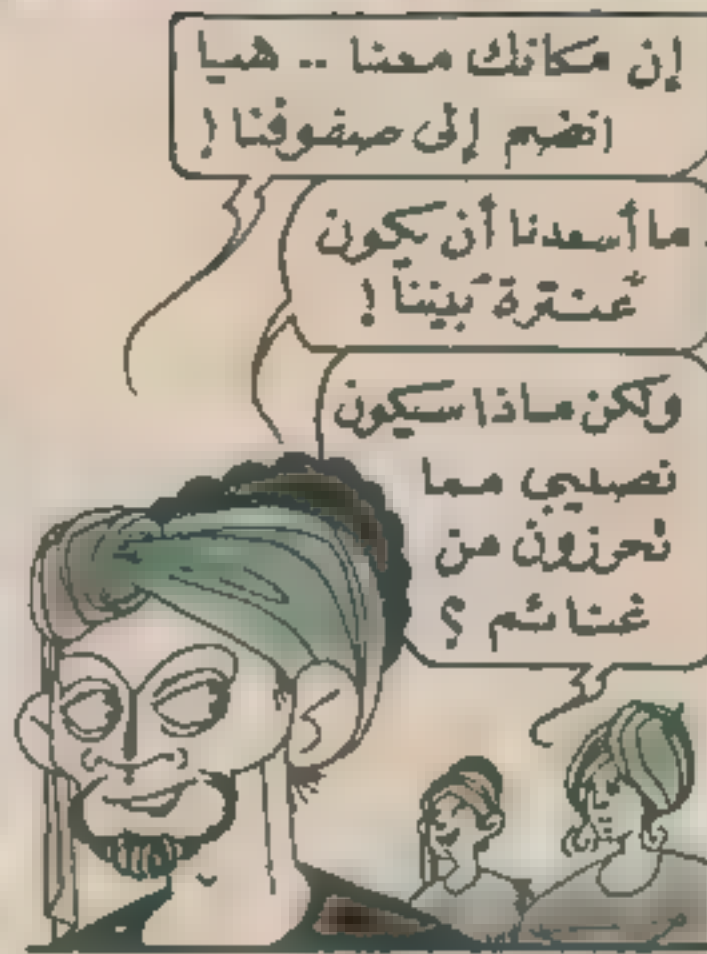 إن مكانك معنا .. هميا
انضم إلى صفوفنا !
ما أسعدنا أن يكون
"عنترة" بيننا !
ولكن ماذا سيكون
نصيبي مما
تحرزون من
غنائم ؟